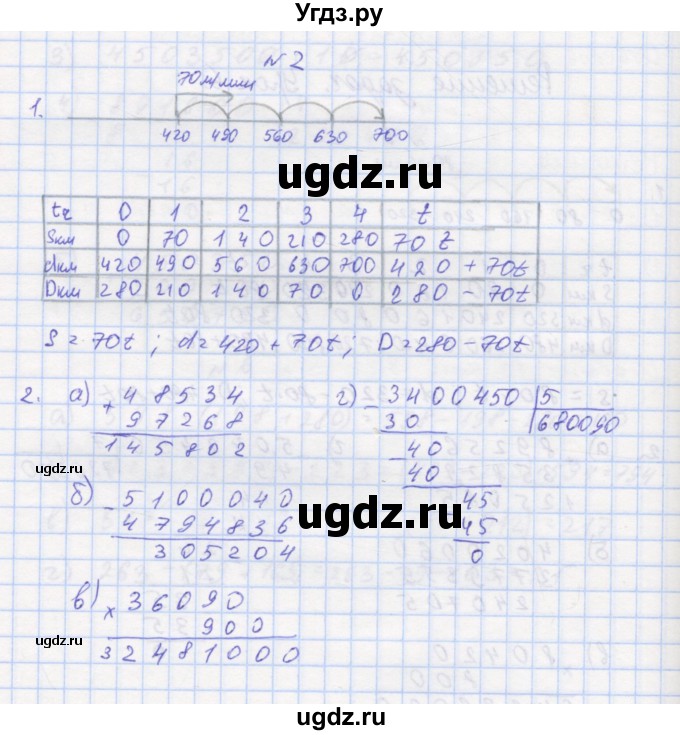 Угдз.ру
№2
70 м/мин
1.
420 490 560 630 700
ugdz.ru
tч 0 1 2 3 4 t
Sкм 0 70 140 210 280 70t
dкм 420 490 560 630 700 420 + 70t
Dкм 280 210 140 70 0 280 - 70t
S = 70t ; d = 420 + 70t ; D = 280 - 70t
ugdz.ru
2. а) + 48534
97268
145802
г) - 3400450 | 5
30 680090
- 40
40
45
45
0
ugdz.ru
ugdz.ru
ugdz.ru
б) - 5100040
4794836
305204
ugdz.ru
в) × 36090
900
32481000
ugdz.ru
ugdz.ru
ugdz.ru